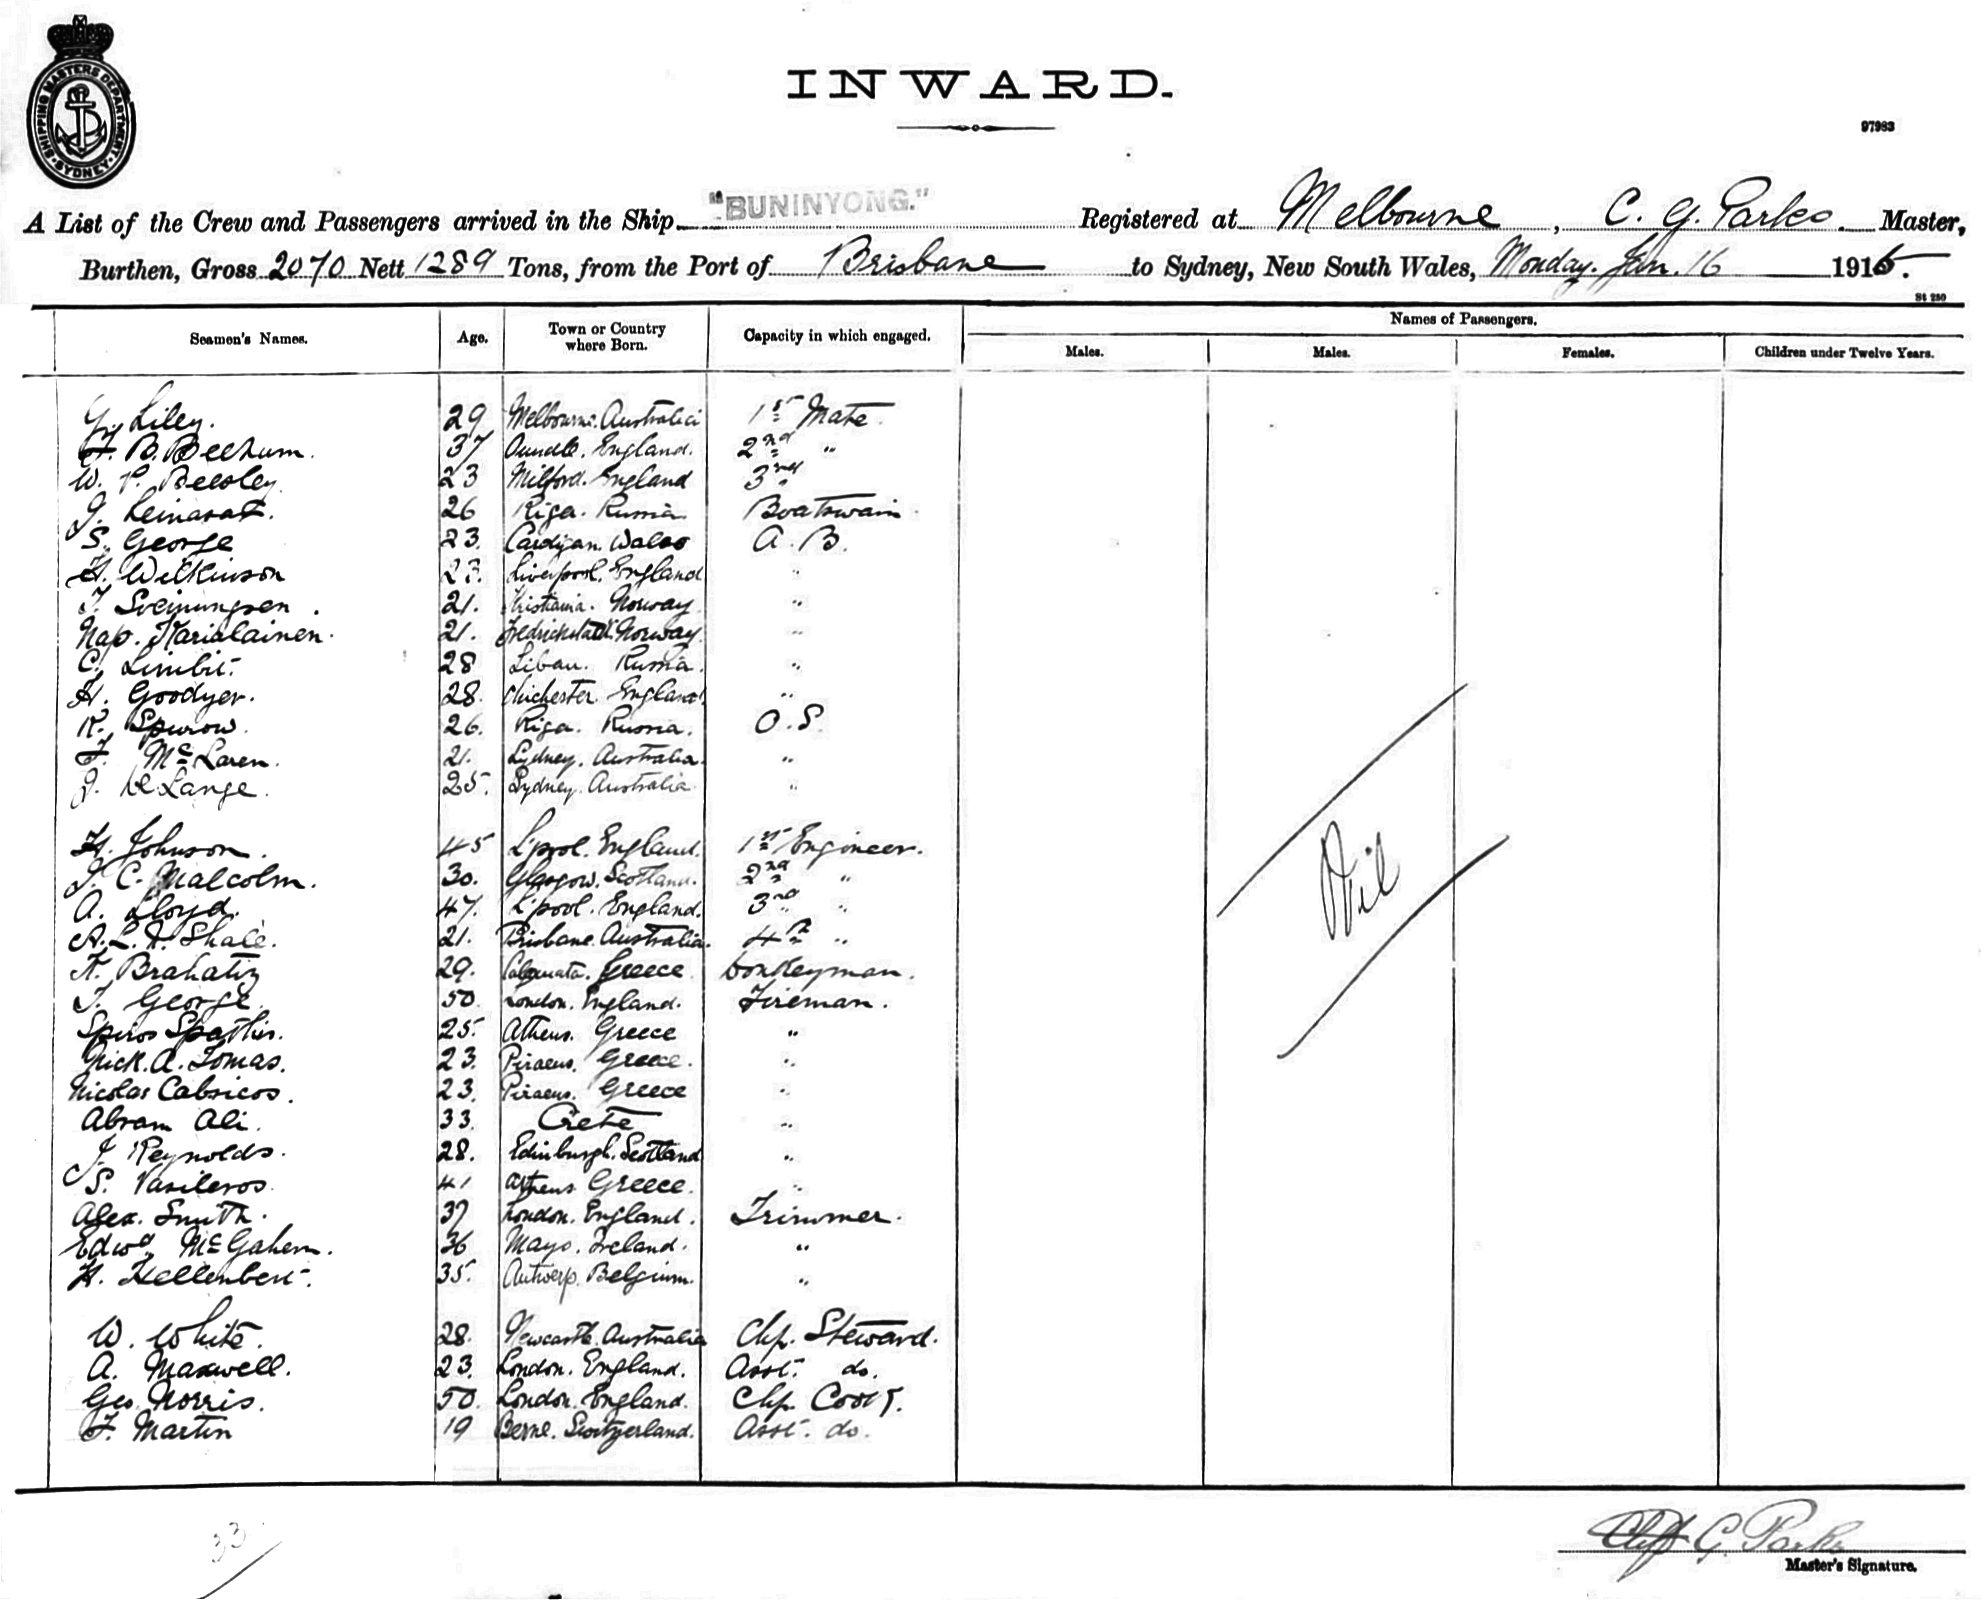 SHIPPING MASTERS DEPARTMENT. SYDNEY
INWARD.
97983
A List of the Crew and Passengers arrived in the Ship "BUNINYONG." Registered at Melbourne, C. G. Parks. Master,
Burthen, Gross 2070 Nett 1289 Tons, from the Port of Brisbane to Sydney, New South Wales, Monday. Jan. 16 1916.
St 250
Seamen's Names. Age. Town or Country where Born. Capacity in which engaged. Names of Passengers.
Males. Males. Females. Children under Twelve Years.
G. Liley. 29 Melbourne. Australia 1st Mate.
F. B. Beecham. 37 Oundle. England. 2nd "
W. P. Beesley. 23 Milford. England 3rd "
J. 26 Riga. Russia. Boatswain.
S. George 23. Cardigan. Wales A. B.
H. Wilkinson 23. Liverpool. England "
T. Sveinungsen. 21. Kristiania. Norway "
Nap. Karialainen. 21. Fredrickstadt. Norway. "
C. Limbit. 28 Libau. Russia. "
H. Goodyer. 28. Chichester. England. "
K. Spurow. 26. Riga. Russia. O. S.
F. McLaren. 21. Sydney. Australia. "
J. de Lange. 25. Sydney. Australia "
H. Johnson. 45 L'pool. England. 1st Engineer.
J. C. Malcolm. 30. Glasgow. Scotland. 2nd "
A. Lloyd. 47. L'pool. England. 3rd "
A. L. Shale. 21. Brisbane. Australia. 4th "
29. Calamata. Greece Donkeyman.
T. George. 50. London. England. Fireman.
Spiros Spathis. 25. Athens. Greece "
Nick. A. Tomas. 23. Piraeus. Greece. "
Nicolas Cabsicos. 23. Piraeus. Greece "
Abram Ali. 33. Crete "
J. Reynolds. 28. Edinburgh. Scotland "
S. Vasileros. 41 Athens Greece. "
Alex. Smith. 37 London. England. Trimmer.
Edwd. McGahern. 36 Mayo. Ireland. "
H. Hellenbert. 35. Antwerp. Belgium. "
W. White. 28. Newcastle. Australia Chf. Steward.
A. Maxwell. 23. London. England. Asst. do.
Geo. Norris. 50. London. England. Chf. Cook.
F. Martin 19 Berne. Switzerland. Asst. do.
Nil
33
Cliff G. Parks
Master's Signature.